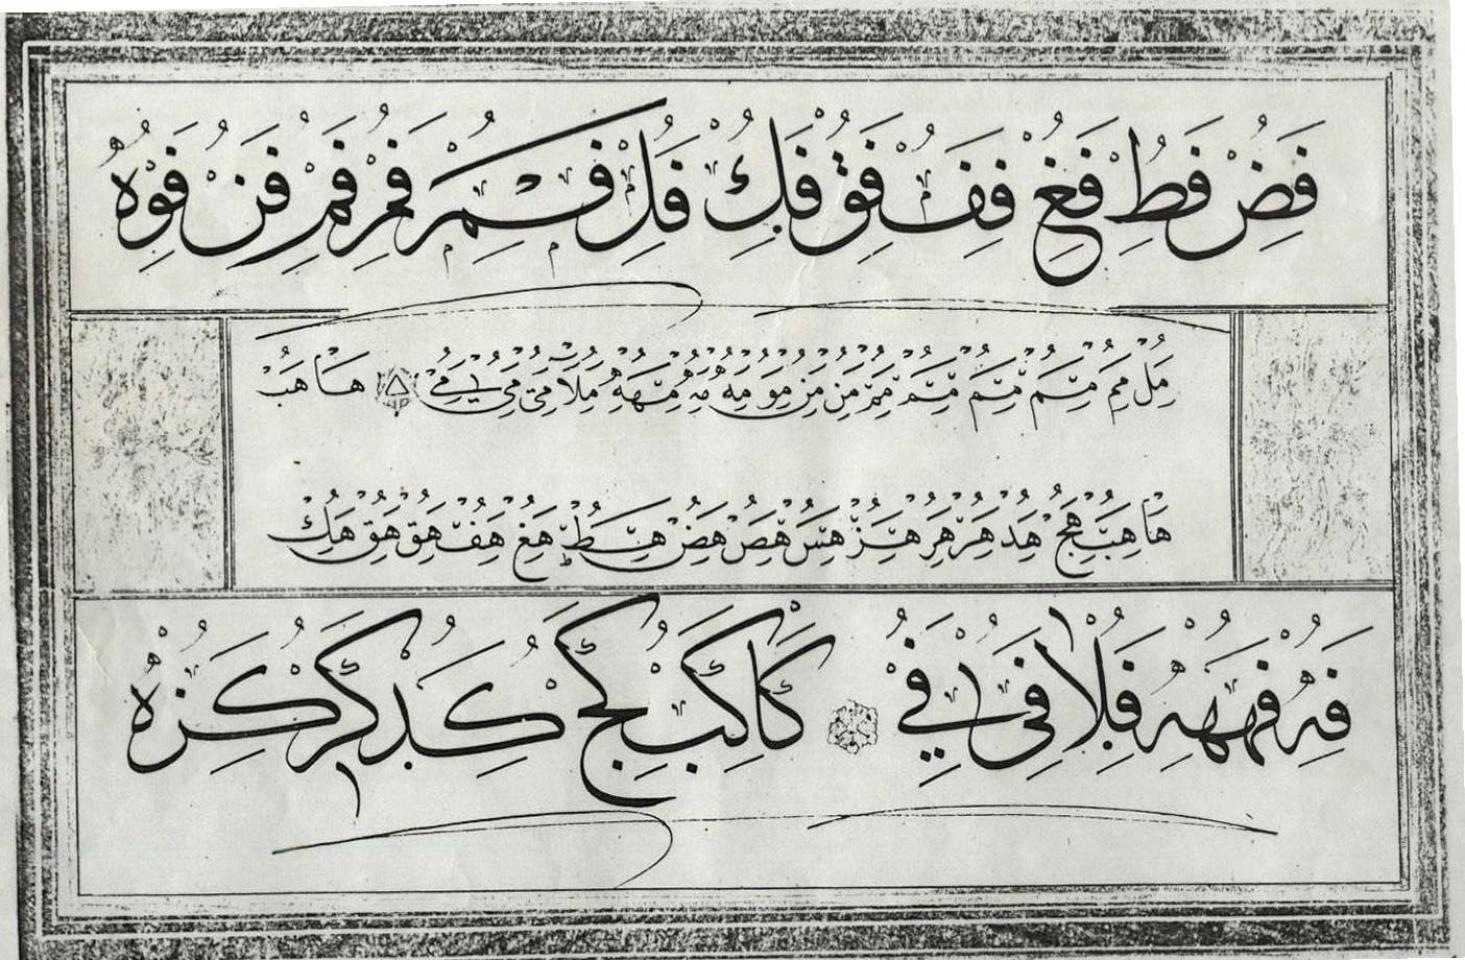 فض فط فغ فف فق فك فل فم فم فم فن فو فه
مل مم مم مم مم مم من من مو مه مه مهه ملا مى مى مي ها هب
ها هب هج هد هر هر هز هس هص هض هط هغ هف هق هق هك
فه فهه فلا فى في كا كب كج كد كر كز ه